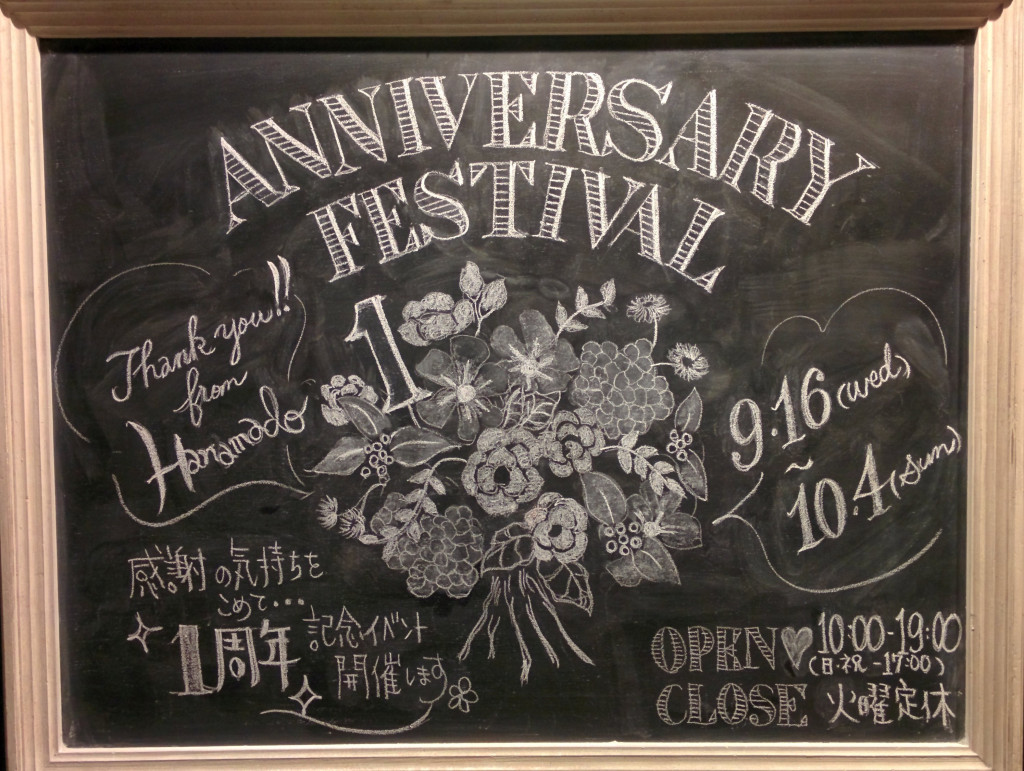 ANNIVERSARY
FESTIVAL
1
Thank you!!
from
Hanamado
9.16 (wed)
~
10.4 (sun)
感謝の気持ちを
こめて・・・
1周年
記念イベント
開催します
OPEN♥10:00-19:00
(日・祝-17:00)
CLOSE 火曜定休